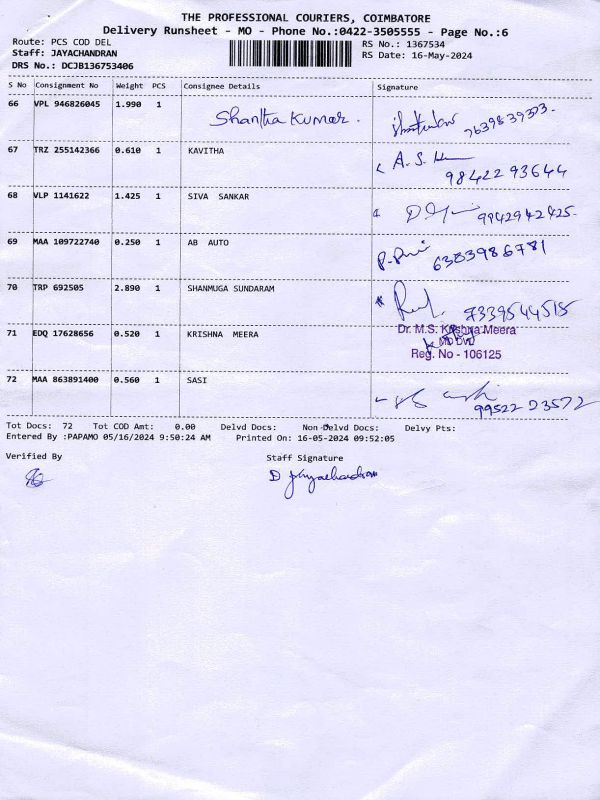 THE PROFESSIONAL COURIERS, COIMBATORE
Delivery Runsheet - MO - Phone No.:0422-3505555 - Page No.:6
Route: PCS COD DEL
Staff: JAYACHANDRAN
DRS No.: DCJB136753406
RS No.: 1367534
RS Date: 16-May-2024
S No Consignment No Weight PCS Consignee Details Signature
66 VPL 946826045 1.990 1 Shantha Kumar. 7639839373.
67 TRZ 255142366 0.610 1 KAVITHA A.S. 9842293644
68 VLP 1141622 1.425 1 SIVA SANKAR 9942942425.
69 MAA 109722740 0.250 1 AB AUTO 6383986781
70 TRP 692505 2.890 1 SHANMUGA SUNDARAM 7339544515
71 EDQ 17628656 0.520 1 KRISHNA MEERA Dr. M.S. Krishna Meera
Reg. No - 106125
72 MAA 863891400 0.560 1 SASI 9952223572
Tot Docs: 72 Tot COD Amt: 0.00 Delvd Docs: Non-Delvd Docs: Delvy Pts:
Entered By :PAPAMO 05/16/2024 9:50:24 AM Printed On: 16-05-2024 09:52:05
Verified By Staff Signature
D Jayachandran